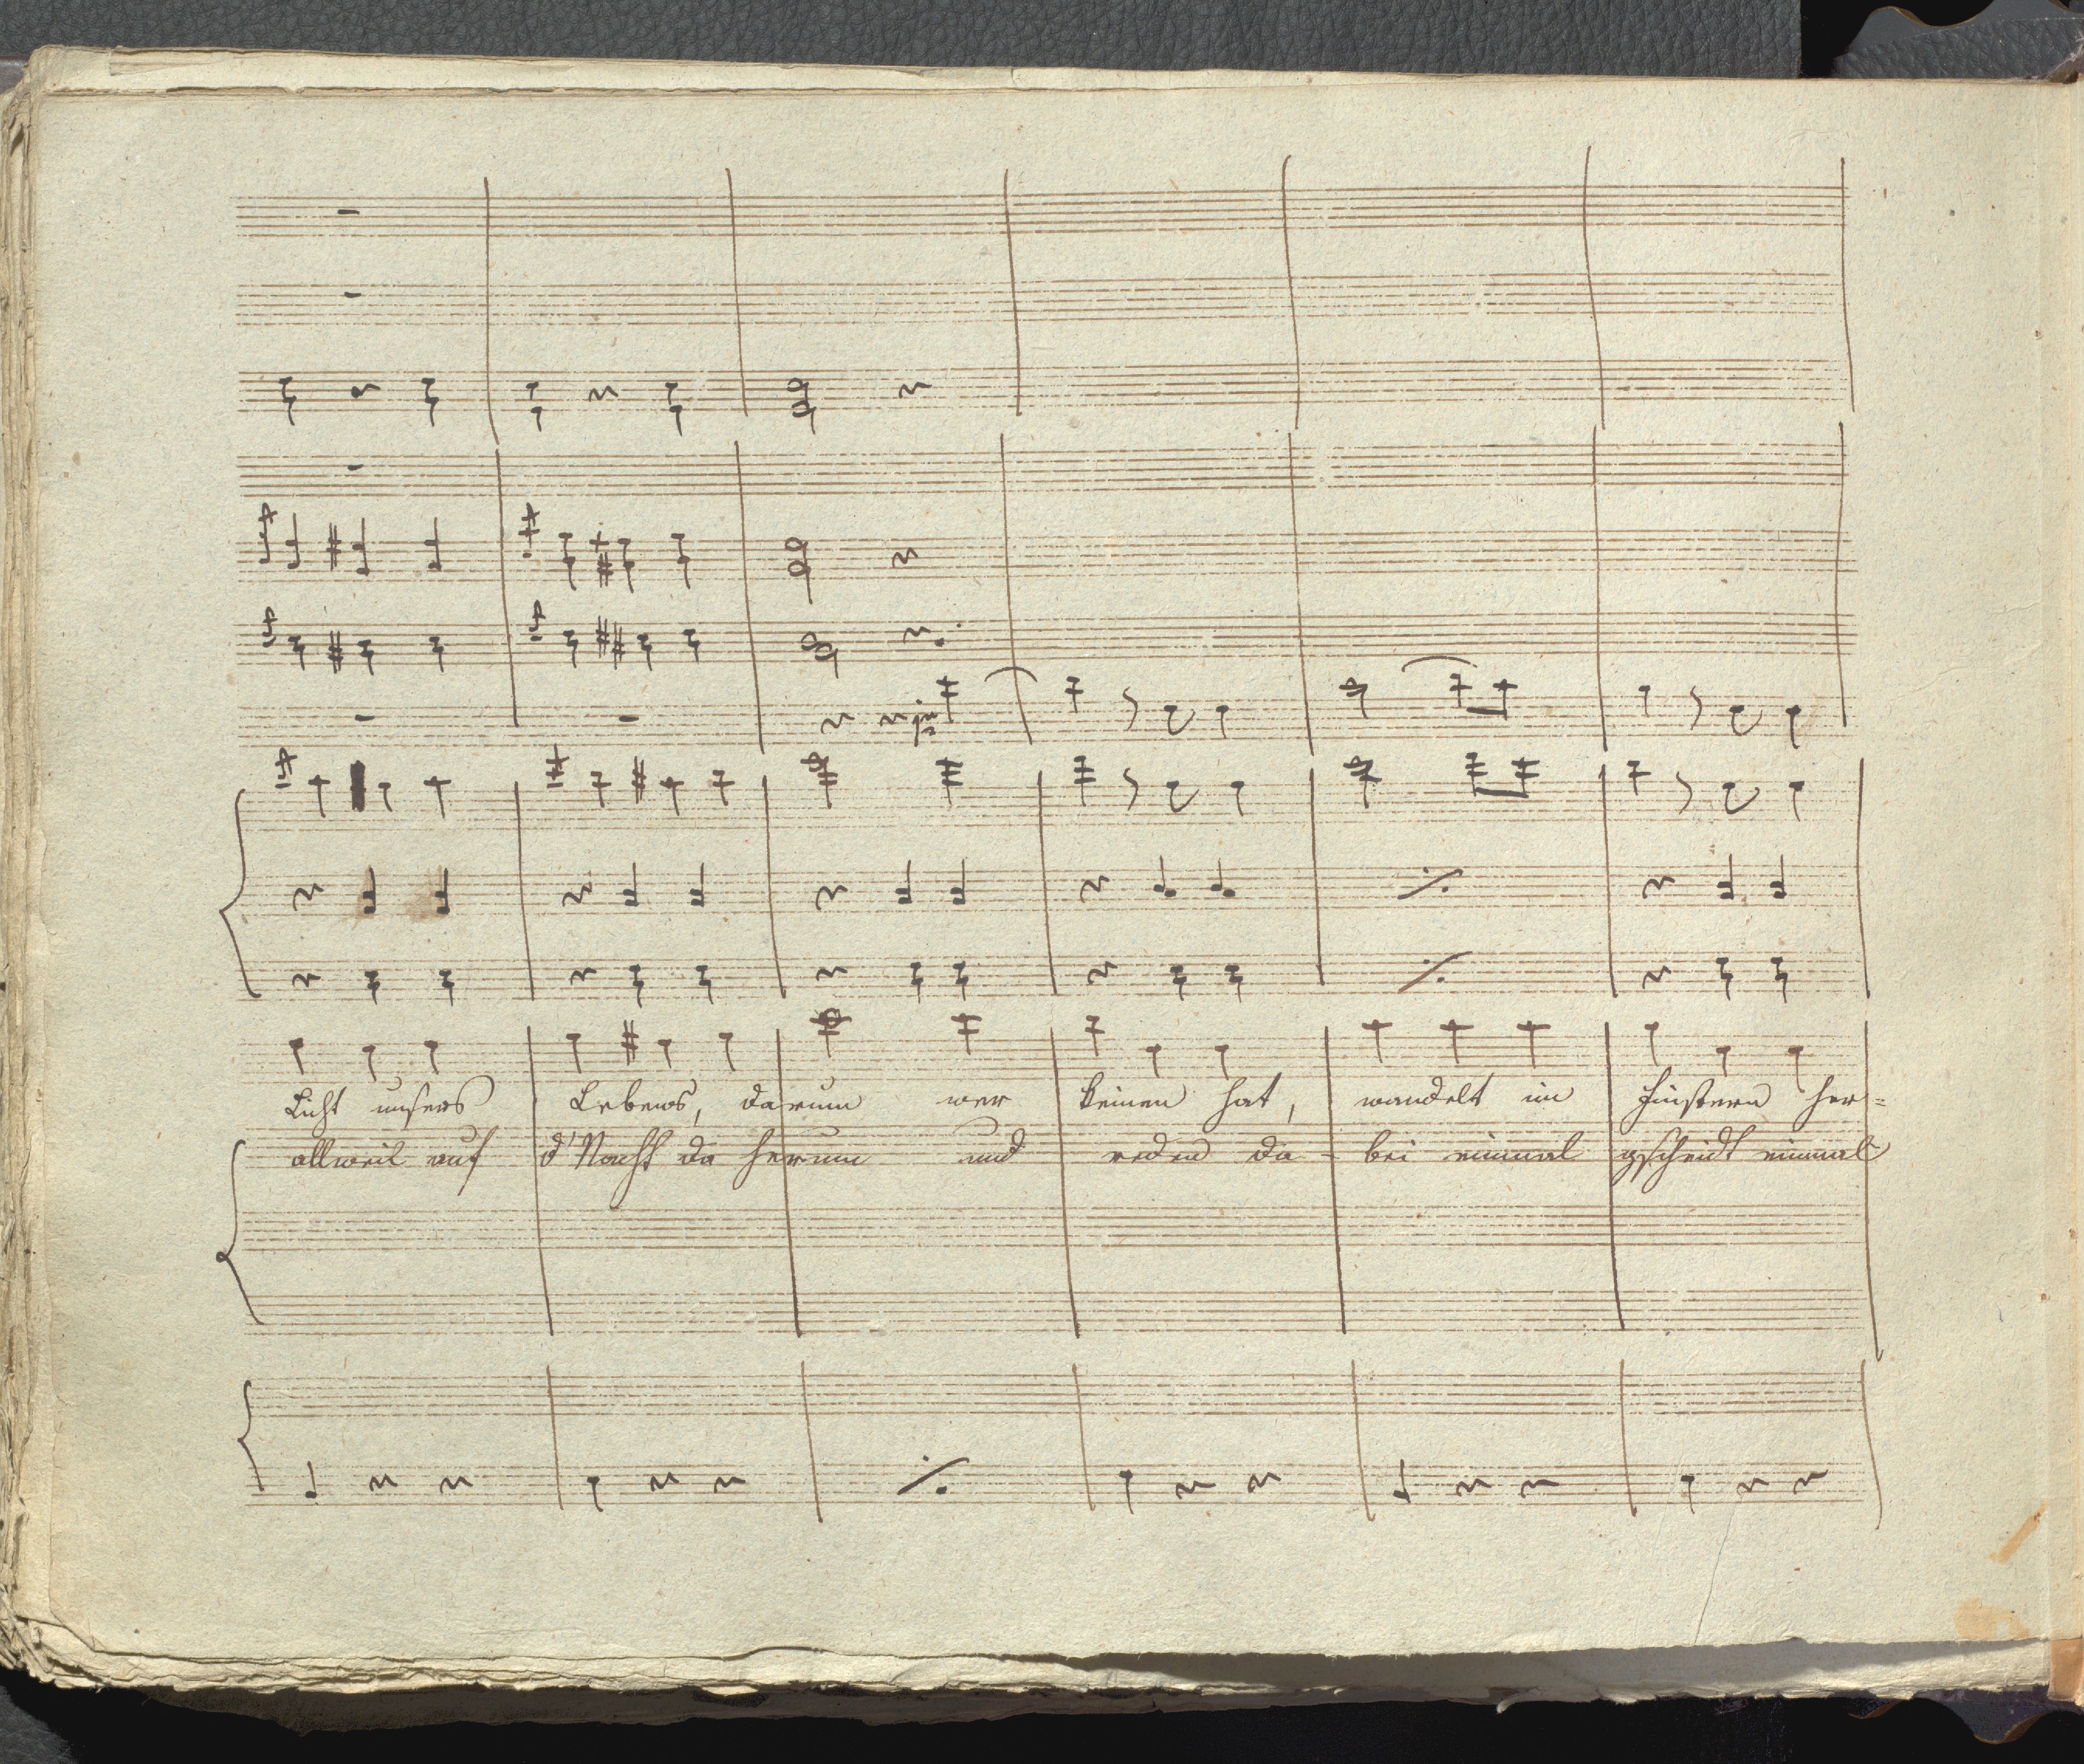 Licht unsers Lebens, darum wer keinen hat, wandelt im Finstern her=
allweil auf d'Nacht da herum und reden da - bei einmal gscheidt einmal